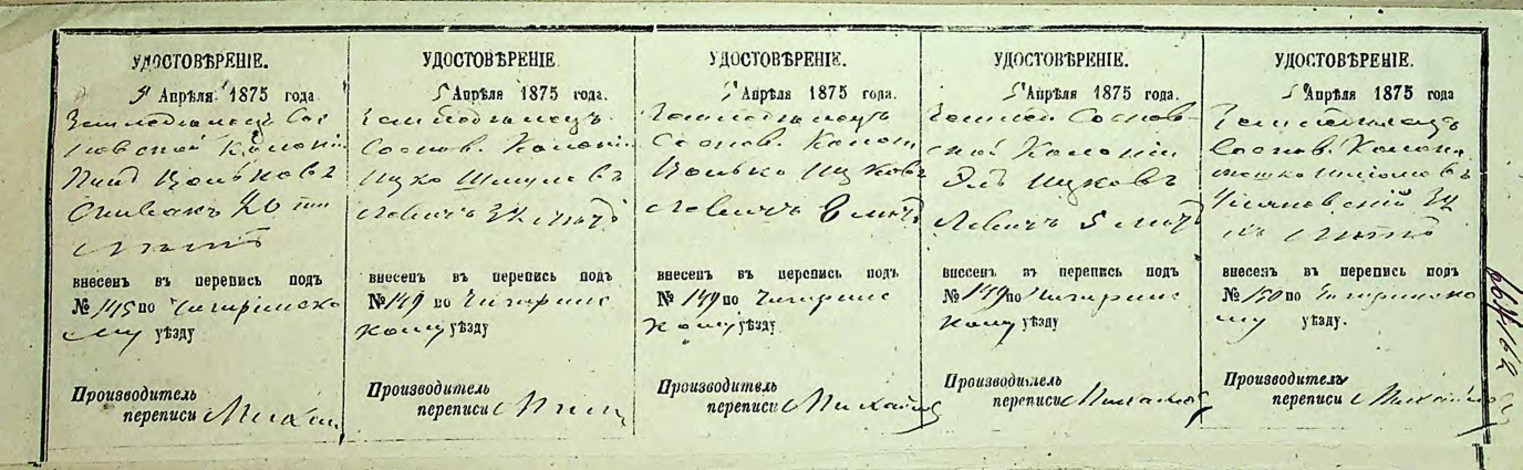 УДОСТОВѢРЕНІЕ.
5 Апрѣля 1875 года
Земледѣлецъ Сос
новской Колоніи
Цолековъ
Спивакъ 20 ти
лѣтъ
внесенъ въ перепись подъ
№ 145 по Чигиринско
му уѣзду
Производитель
переписи
УДОСТОВѢРЕНІЕ
5 Апрѣля 1875 года.
Земледѣлецъ
Соснов. Колоніи
Ицко Шмулевъ
Левичъ лѣтъ
внесенъ въ перепись подъ
№ 149 по Чигиринс
кому уѣзду
Производитель
переписи
УДОСТОВѢРЕНІЕ.
5 Апрѣля 1875 года.
Земледѣлецъ
Соснов. Колон
Ицковъ
Левичъ 8 лѣтъ
внесенъ въ перепись подъ
№ 149 по Чигиринс
кому уѣзду
Производитель
переписи Михайлов
УДОСТОВѢРЕНІЕ.
5 Апрѣля 1875 года.
Соснов-
ской Колоніи
Ицковъ
Левичъ 5 лѣтъ
внесенъ въ перепись подъ
№ 149 по Чигиринс
кому уѣзду
Производитель
переписи
УДОСТОВѢРЕНІЕ.
5 Апрѣля 1875 года
Земледѣлецъ
Соснов. Колоніи
лѣтъ
внесенъ въ перепись подъ
№ 150 по Чигиринско
му уѣзду.
Производитель
переписи Михайлов